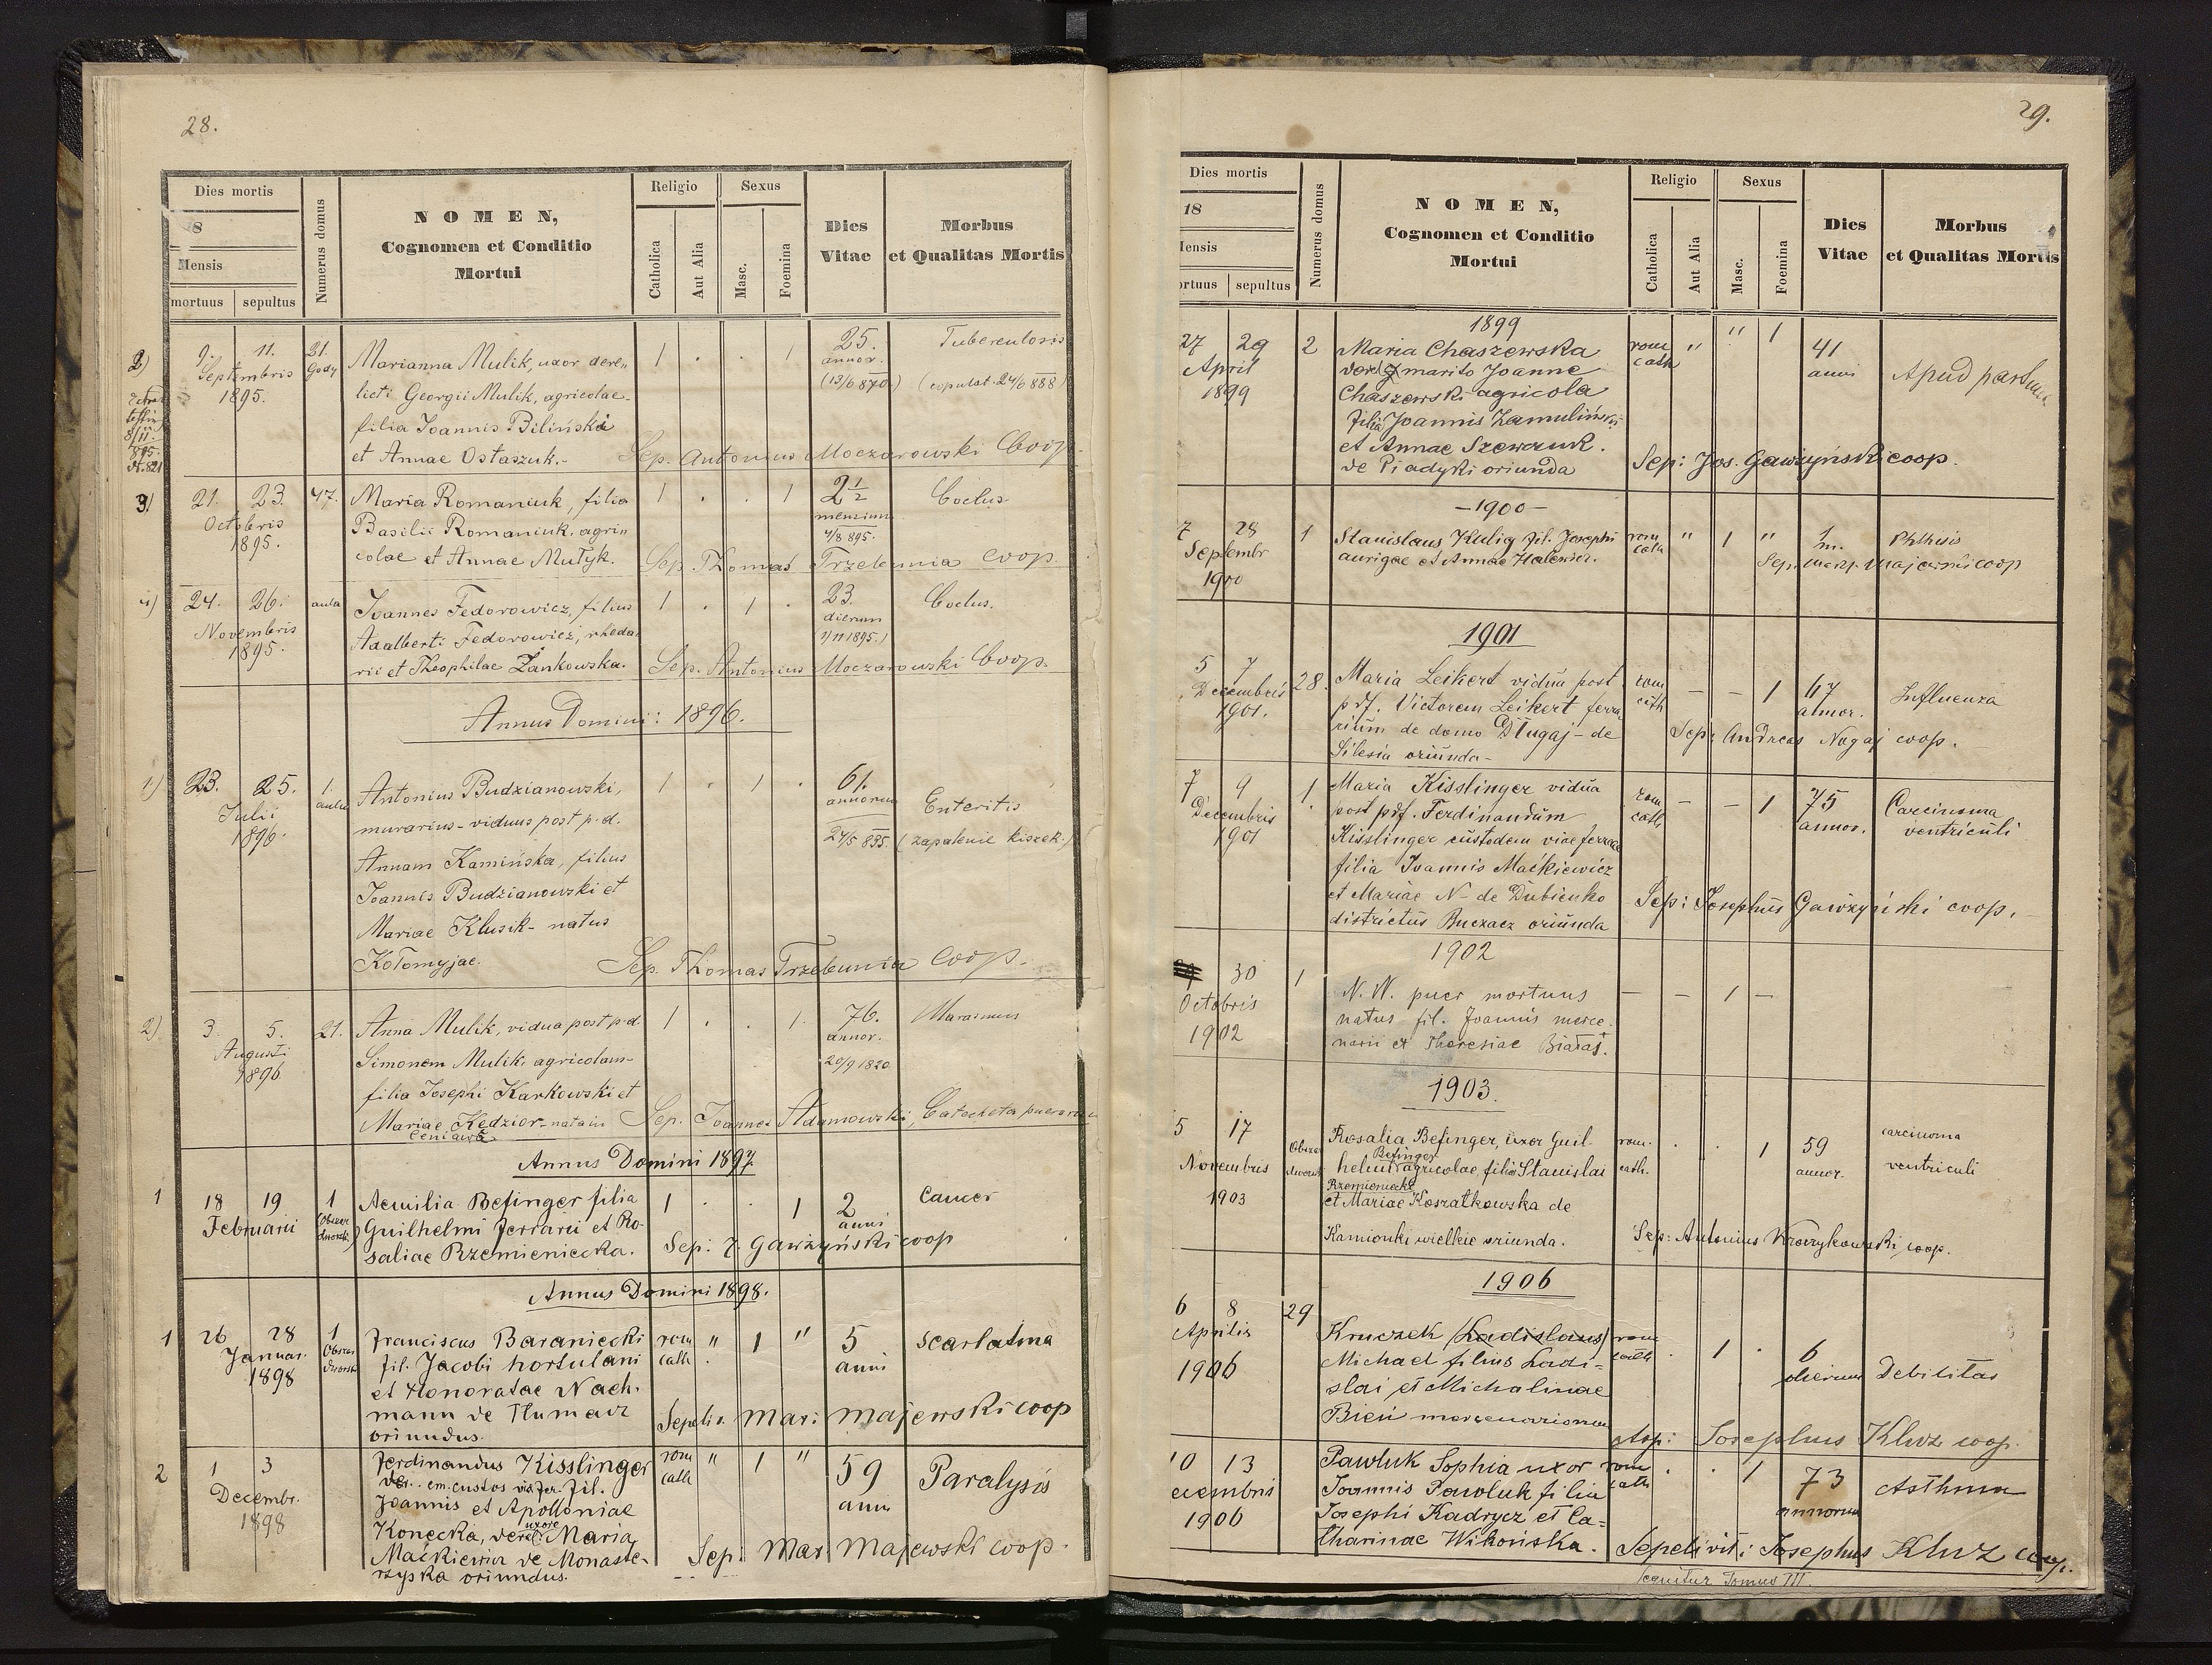 28.
Dies mortis
8
Mensis
mortuus sepultus
Numerus domus
NOMEN,
Cognomen et Conditio
Mortui
Religio
Catholica
Aut Alia
Sexus
Masc.
Foemina
Dies
Vitae
Morbus
et Qualitas Mortis
2) 9. 11. 21. Gody
Septembris
1895.
8/11.
895.
Marianna Mulik, uxor dere„
licti Georgii Mulik, agricolae.
filia Joannis Biliński
et Annae Ostaszuk.-
1 . . 1
25.
annor.
(13/6 870)
Tuberculosis
(copulat. 24/6 888)
Sep. Antonius Moczarowski Coop.
3) 21. 23. 47.
Octobris
1895.
Maria Romaniuk, filia
Basilii Romaniuk, agri„
colae et Annae Mutyk.
1 . . 1
2 1/2
mensium
4/8 895.
Coelus
Sep. Thomas Trzebunia coop.
4) 24. 26. aula
Novembris
1895.
Joannes Fedorowicz, filius
Adalberti Fedorowicz, rheda„
rii et Theophilae Żankowska.
1 . 1 .
23.
dierum
1/11 1895.)
Coelus.
Sep. Antonius Moczarowski Coop.
Annus Domini: 1896.
1) 23. 25. 1. aula
Julii
1896.
Antonius Budzianowski,
murarius - viduus post p. d.
Annam Kamińska, filius
Joannis Budzianowski et
Mariae Klusik - natus
Kołomyjae.
1 . 1 .
61.
annorum
24/5 835.
Enteritis
(zapalenie kiszek.)
Sep. Thomas Trzebunia coop.
2) 3. 5. 21.
Augusti
1896
Anna Mulik, vidua post p. d.
Simonem Mulik, agricolam-
filia Josephi Karkowski et
Mariae Kędzior - natam
1 . . 1.
76.
annor.
20/9 1820
Marasmus
Sep. Joannes Adamowski, Catecheta puerorum
Annus Domini 1897.
1 18 19 1
Februarii
Aemilia Befinger filia
Guilhelmi ferrarii et Ro-
saliae Rzemieniecka.
1 . . 1
2
anni
Cancer
Sep: J. Gawżyński coop
Annus Domini 1898.
1 26 28 1
Januar.
1898
Obszar
dworsk
Franciscus Baraniecki
fil. Jacobi hortulani
et Honoratae Nach-
mann de Tłumacz
oriundus.
rom
cath " 1 "
5
anni
Scarlatina
Sepeliv. Mar: Majewski coop
2 1 3
Decembr.
1898
Ferdinandus Kisslinger
em. custos viae fer. fil.
Joannis et Apolloniae
Konecka, derel. uxore Maria
Maćkiewicz de Monaste-
rzyska oriundus.
rom
cath " 1 "
59
anni
Paralysis
Sep. Mar Majewski coop.
29.
Dies mortis
18
Mensis
mortuus sepultus
Numerus domus
NOMEN,
Cognomen et Conditio
Mortui
Religio
Catholica
Aut Alia
Sexus
Masc.
Foemina
Dies
Vitae
Morbus
et Qualitas Mortis
1899
27 29 2
April
1899
Maria Chaszewska
marito Joanne
Chaszewski agricola
filia Joannis Zamuliński
et Annae Szewczuk.
de Piadyki oriunda
rom
cath " " 1
41
anni
Apud partum
Sep: Jos. Gawżyński coop.
- 1900 -
7 28 1
Septembr
1900
Stanislaus Kulig fil. Josephi
aurigae et Annae Halewicz.
rom
cath " 1 "
1 m.
Phthisis
Sep. Marp. Majewski coop
1901
5 7 28.
Decembris
1901.
Maria Leikert vidua post
pdf. Victorem Leikert ferra
rium de domo Długaj - de
Silesia oriunda -
rom
cath - - 1
67
annor.
Influenza
Sep: Andreas Nogaj coop.
7 9 1.
Decembris
1901
Maria Kisslinger vidua
post pdf. Ferdinandum
Kisslinger custodem viae ferreae
filia Joannis Maćkiewicz
et Mariae N- de Dubienko
districtus Buczacz oriunda
rom
cath - - 1
75
annor.
Carcinoma
ventriculi
Sep: Josephus Gawżyński coop.
1902
30 1
Octobris
1902
N. N. puer mortuus
natus fil. Joannis merce-
narii et Theresiae Białas.
- - 1 -
1903.
5 17
Novembris
1903
Obszar
dworski
Rosalia Befinger, uxor Guil-
Befinger
helmi agricolae, filia Stanislai
Rzemieniecki
et Mariae Koszałkowska de
Kamionki wielkie oriunda.
rom.
cath. . . 1
59
annor.
carcinoma
ventriculi
Sep: Antonius Krozykowski, coop.
1906
6 8 29
Aprilis
1906
Kruczek (Ladislaus)
Michael filius Ladi=
slai et Michalinae
Bień mercenariorum
rom
cath . 1 .
6
dierum
Debilitas
Sep: Josephus Kluz coop.
10 13
ecembris
1906
Pawluk Sophia uxor
Joannis Pawluk filia
Josephi Kadrycz et Ca=
tharinae Wikońska.
rom
cath . . 1
73
annorum
Asthma
Sepelivit: Josephus Kluz coop.
Sequitur Tomus III.